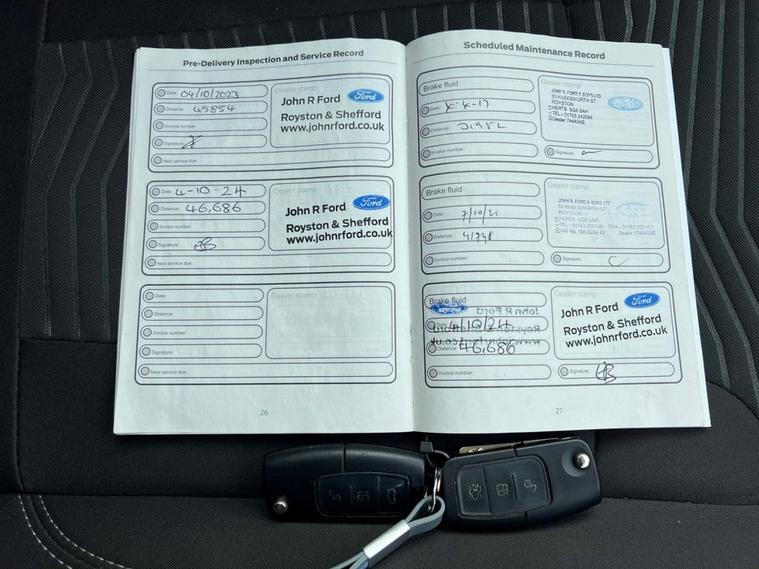 Pre-Delivery Inspection and Service Record
Date: 04/10/2023
Distance: 45854
Invoice number:
Signature:
Next service due:
Dealer stamp:
John R Ford Ford
Royston & Shefford
www.johnrford.co.uk
Date: 4-10-24
Distance: 46,686
Invoice number:
Signature:
Next service due:
Dealer stamp:
John R Ford Ford
Royston & Shefford
www.johnrford.co.uk
Date:
Distance:
Invoice number:
Signature:
Next service due:
Dealer stamp:
26
Scheduled Maintenance Record
Brake fluid
Date:
Distance:
Invoice number:
Dealer stamp:
JOHN R. FORD & SONS LTD
50 KNEESWORTH ST
ROYSTON
HERTS SG8 5AH
Signature:
Brake fluid
Date: 7/10/21
Distance: 41748
Invoice number:
Dealer stamp:
JOHN R. FORD & SONS LTD
ROYSTON
Signature:
Brake fluid
Date: 4/10/24
Distance: 46,686
Invoice number:
Dealer stamp:
John R Ford Ford
Royston & Shefford
www.johnrford.co.uk
Signature:
27